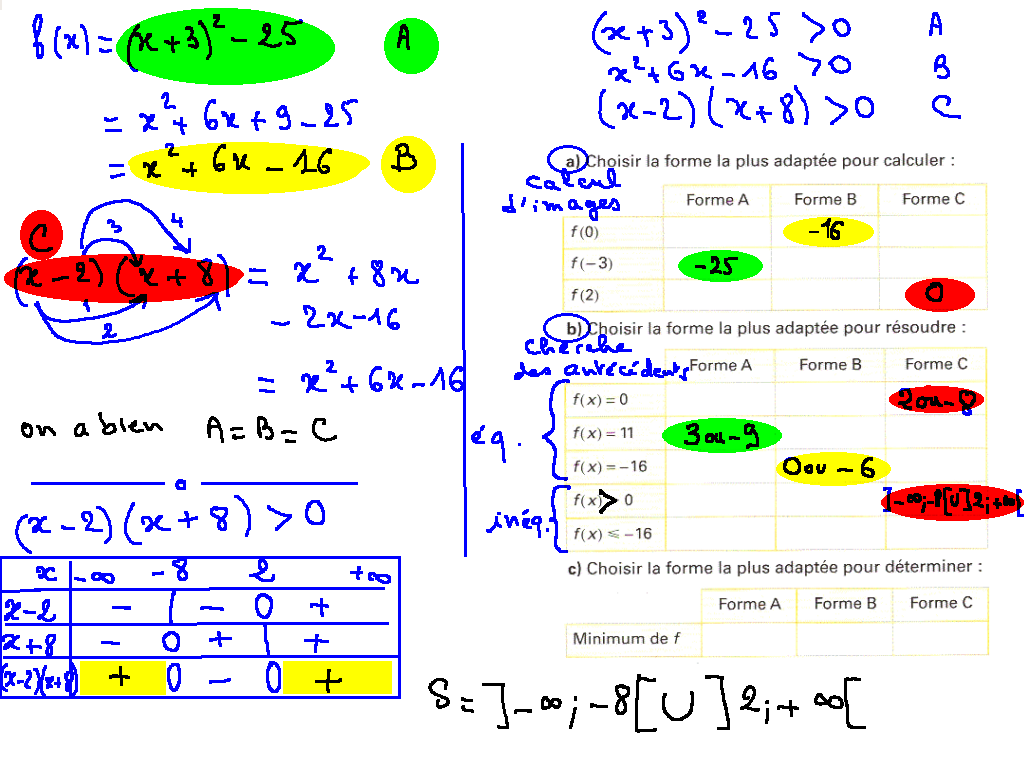 f(x) = (x+3)² - 25 A
= x² + 6x + 9 - 25
= x² + 6x - 16 B
C
3 4
(x-2)(x+8) = x² + 8x
1
2
- 2x - 16
= x² + 6x - 16
on a bien A = B = C
(x-2)(x+8) > 0
x -∞ -8 2 +∞
x-2 - | - 0 +
x+8 - 0 + | +
(x-2)(x+8) + 0 - 0 +
(x+3)² - 25 > 0 A
x² + 6x - 16 > 0 B
(x-2)(x+8) > 0 C
a) Choisir la forme la plus adaptée pour calculer :
calcul
d'images
Forme A Forme B Forme C
f(0) -16
f(-3) -25
f(2) 0
b) Choisir la forme la plus adaptée pour résoudre :
cherche
des antécédents
Forme A Forme B Forme C
éq.
f(x) = 0 2 ou -8
f(x) = 11 3 ou -9
f(x) = -16 0 ou -6
inéq.
f(x) > 0 ]-∞;-8[U]2;+∞[
f(x) ⩽ -16
c) Choisir la forme la plus adaptée pour déterminer :
Forme A Forme B Forme C
Minimum de f
S = ]-∞;-8[U]2;+∞[